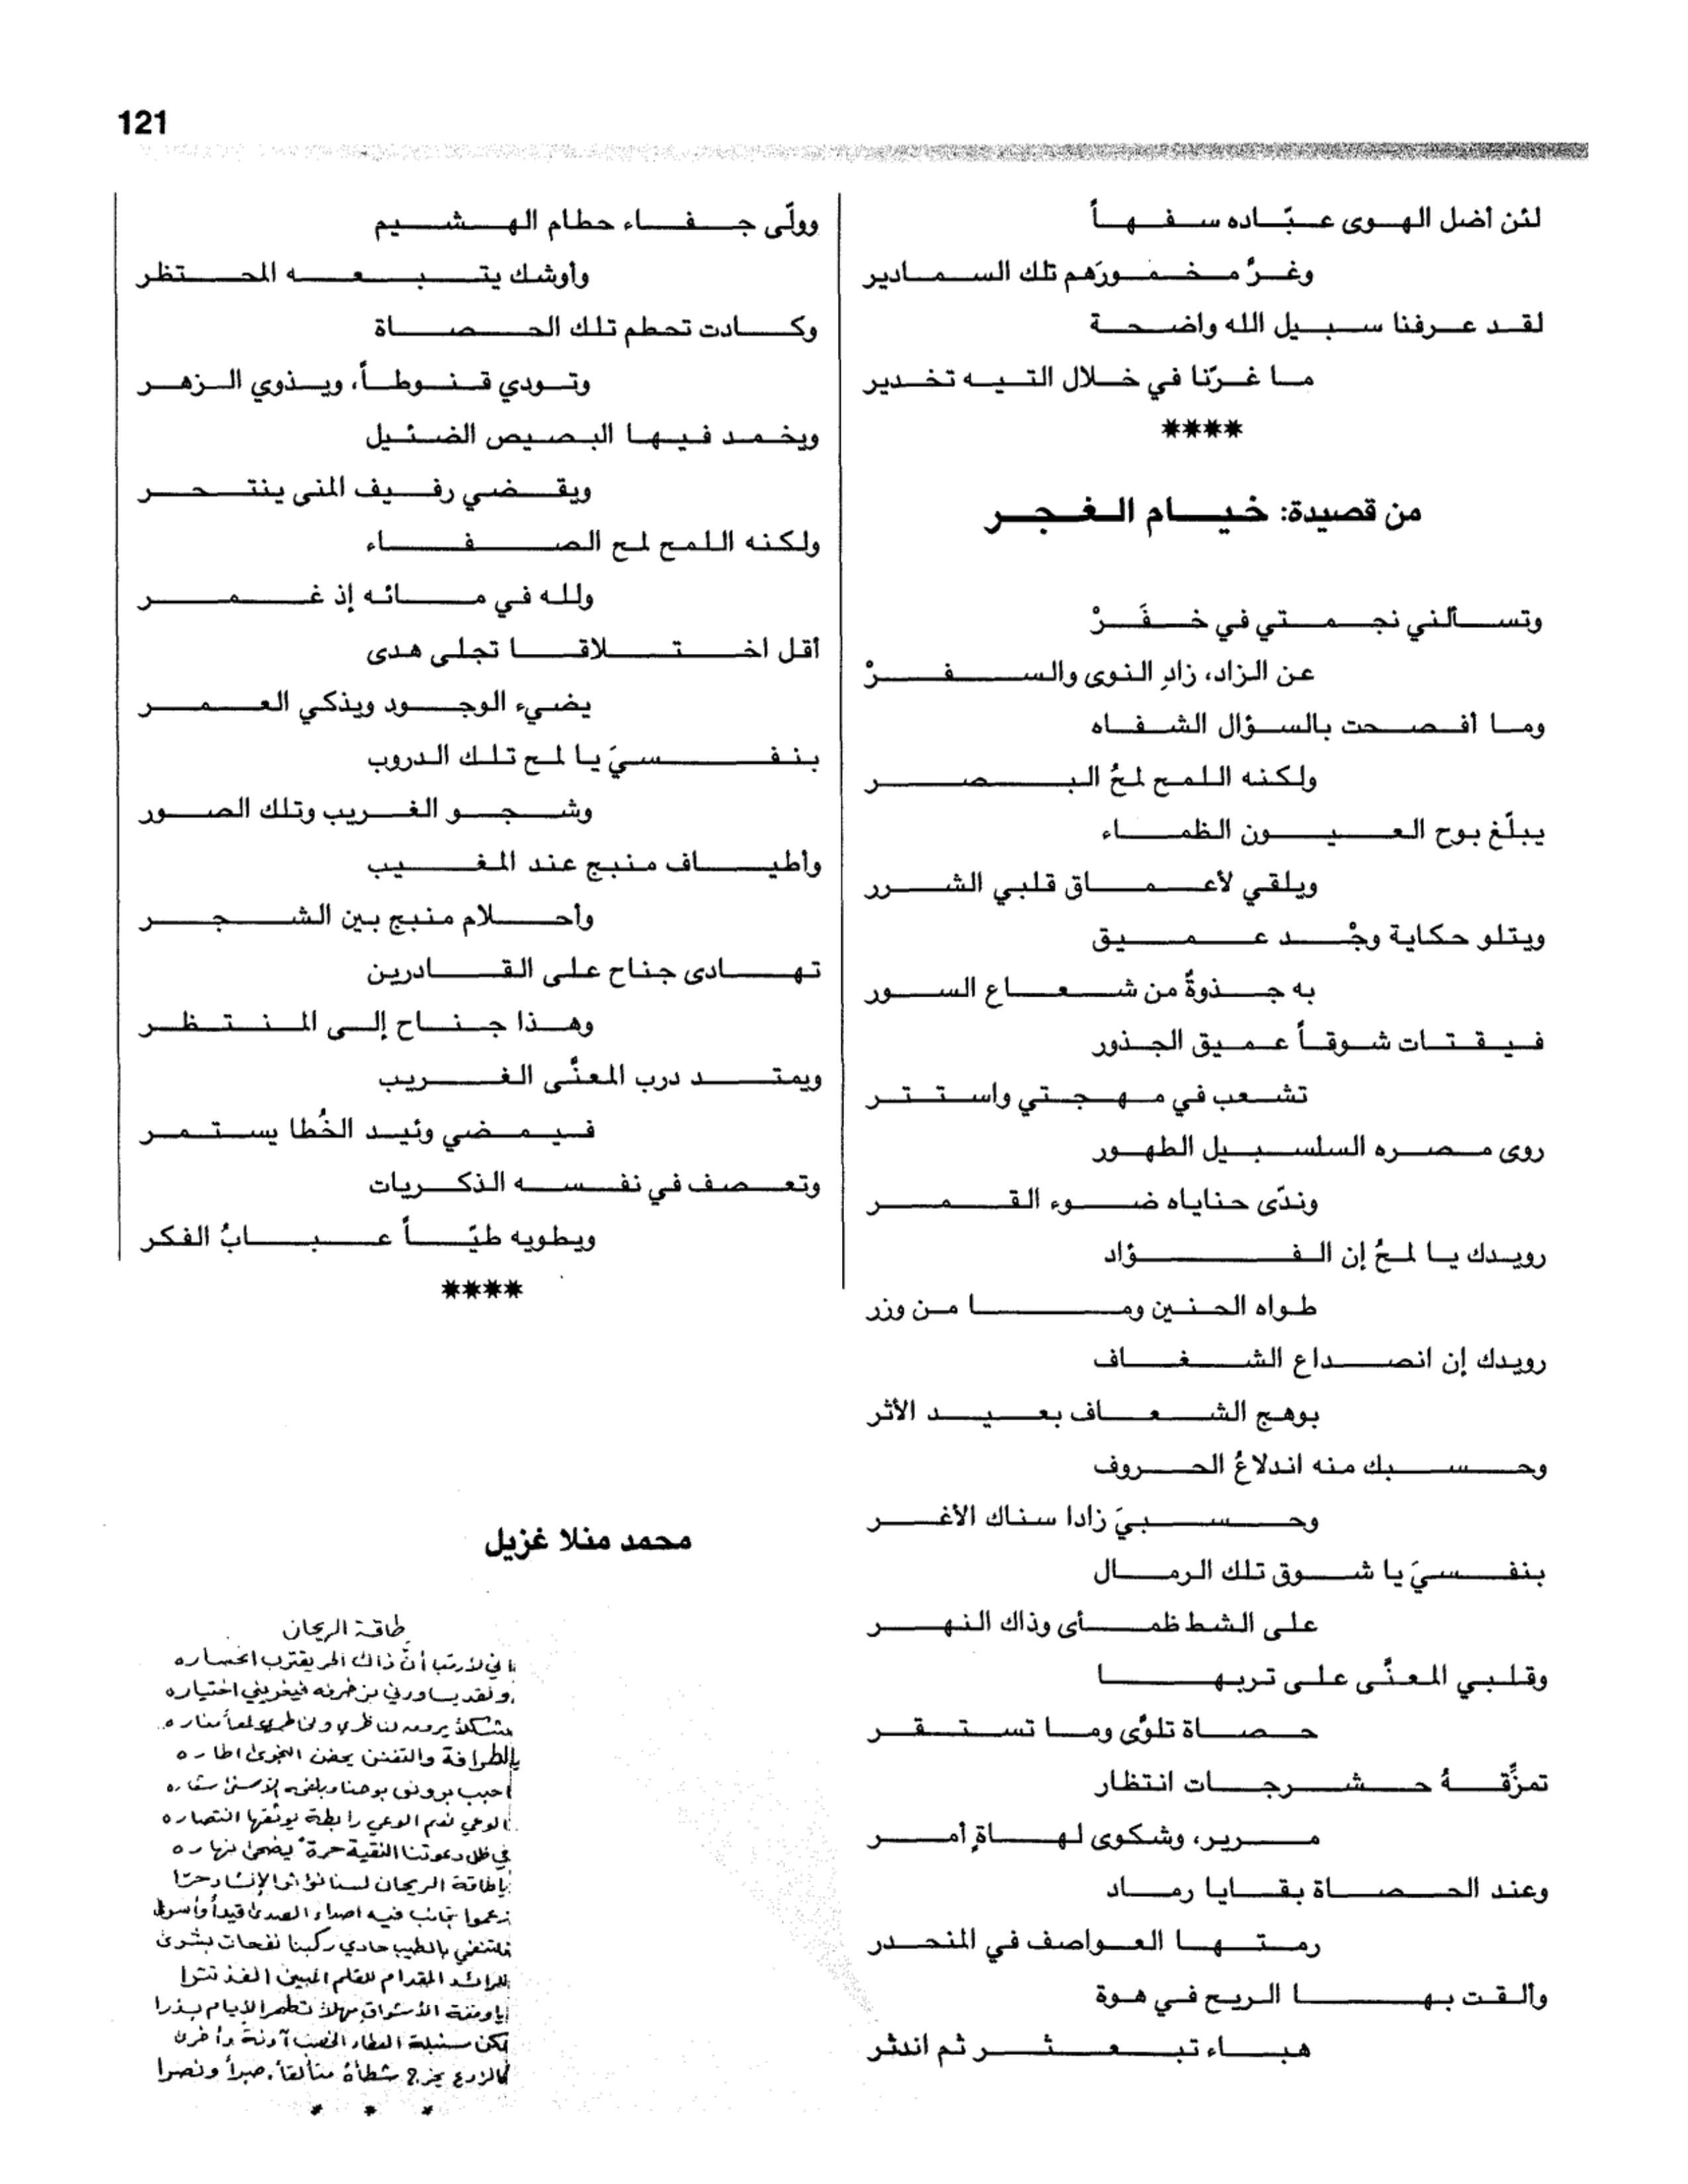 121
لئن أضل الهوى عبّاده سفهاً
وغرَّ مخمورَهم تلك السمادير
لقد عرفنا سبيل الله واضحة
ما غرّنا في خلال التيه تخدير
****
من قصيدة: خيام الغجر
وتسألني نجمتي في خفَرْ
عن الزاد، زادِ النوى والسفرْ
وما أفصحت بالسؤال الشفاه
ولكنه اللمح لمحُ البصر
يبلّغ بوح العيون الظماء
ويلقي لأعماق قلبي الشرر
ويتلو حكاية وجْد عميق
به جذوةٌ من شعاع السور
فيقتات شوقاً عميق الجذور
تشعب في مهجتي واستتر
روى مصره السلسبيل الطهور
وندّى حناياه ضوء القمر
رويدك يا لمحُ إن الفؤاد
طواه الحنين وما من وزر
رويدك إن انصداع الشغاف
بوهج الشعاف بعيد الأثر
وحسبك منه اندلاعُ الحروف
وحسبيَ زادا سناك الأغر
بنفسيَ يا شوق تلك الرمال
على الشط ظمأى وذاك النهر
وقلبي المعنَّى على تربها
حصاة تلوَّى وما تستقر
تمزِّقهُ حشرجات انتظار
مرير، وشكوى لهاةٍ أمر
وعند الحصاة بقايا رماد
رمتها العواصف في المنحدر
وألقت بها الريح في هوة
هباء تبعثر ثم اندثر
وولّى جفاء حطام الهشيم
وأوشك يتبعه المحتظر
وكادت تحطم تلك الحصاة
وتودي قنوطاً، ويذوي الزهر
ويخمد فيها البصيص الضئيل
ويقضي رفيف المنى ينتحر
ولكنه اللمح لمح الصفاء
ولله في مائه إذ غمر
أقل اختلاقا تجلى هدى
يضيء الوجود ويذكي العمر
بنفسيَ يا لمح تلك الدروب
وشجو الغريب وتلك الصور
وأطياف منبج عند المغيب
وأحلام منبج بين الشجر
تهادى جناح على القادرين
وهذا جناح إلى المنتظر
ويمتد درب المعنَّى الغريب
فيمضي وئيد الخُطا يستمر
وتعصف في نفسه الذكريات
ويطويه طيّاً عبابُ الفكر
****
محمد منلا غزيل
طاقة الريحان
أن ذاك
اختياره
والتفنن يحضن النجوى إطاره
الوعي نعم الوعي رابطة يوثقها انتصاره
في ظل دعوتنا النقية حرة يضحى نهاره
يا طاقة الريحان لسنا نؤثر الإنشاد حرّا
زعموا تجانب فيه أصداء الصدى قيداً
بالطيب حادي ركبنا نفحات بشرى
للرائد المقدام للقلم المبين الفذ تترا
الأشواق مهلا
سنبلة العطاء الخصب آونة وأخرى
كالزرع يخرج شطأه متألقاً، صبراً ونصرا
* * *